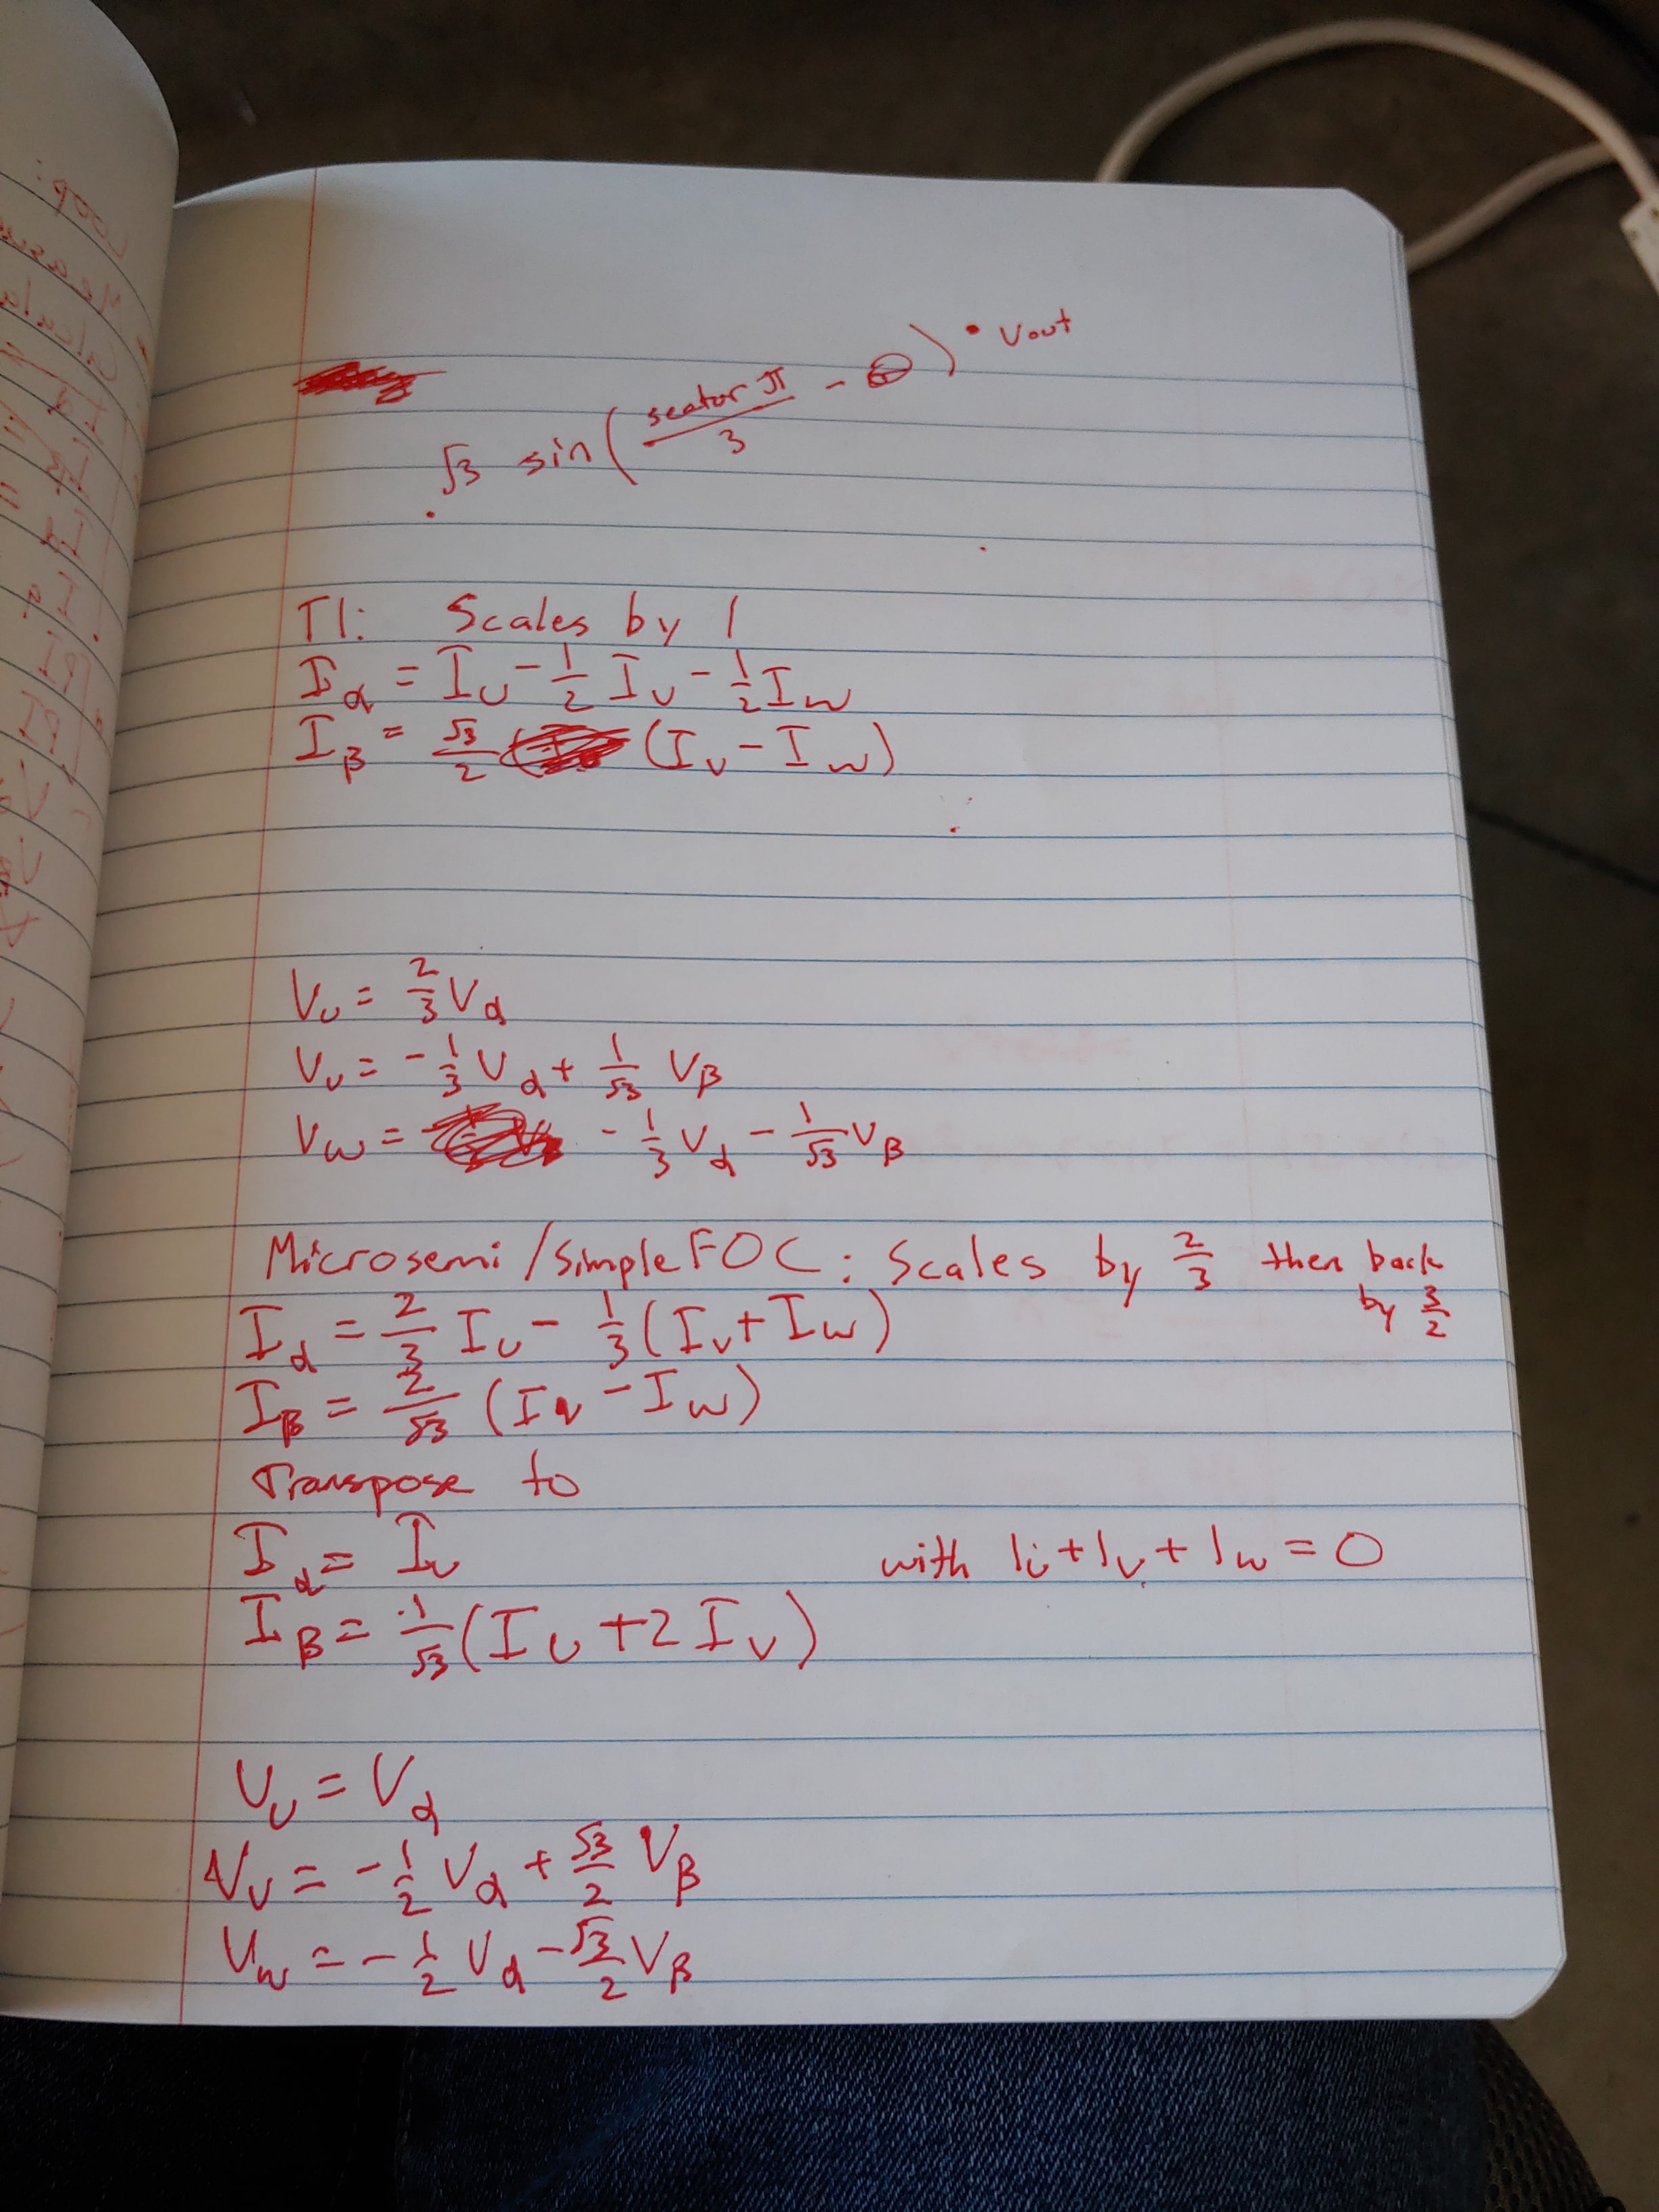 √3 sin(sector π/3 - θ) • Vout
TI: Scales by 1
Iα = IU - 1/2 IV - 1/2 IW
Iβ = √3/2 (IV - IW)
VU = 2/3 Vα
VV = -1/3 Vα + 1/√3 Vβ
VW = -1/3 Vα - 1/√3 Vβ
Microsemi/SimpleFOC: Scales by 2/3 then back
by 3/2
Iα = 2/3 IU - 1/3 (IV + IW)
Iβ = 2/√3 (IV - IW)
Transpose to
Iα = IU with IU + IV + IW = 0
Iβ = 1/√3 (IU + 2 IV)
VU = Vα
VV = -1/2 Vα + √3/2 Vβ
VW = -1/2 Vα - √3/2 Vβ